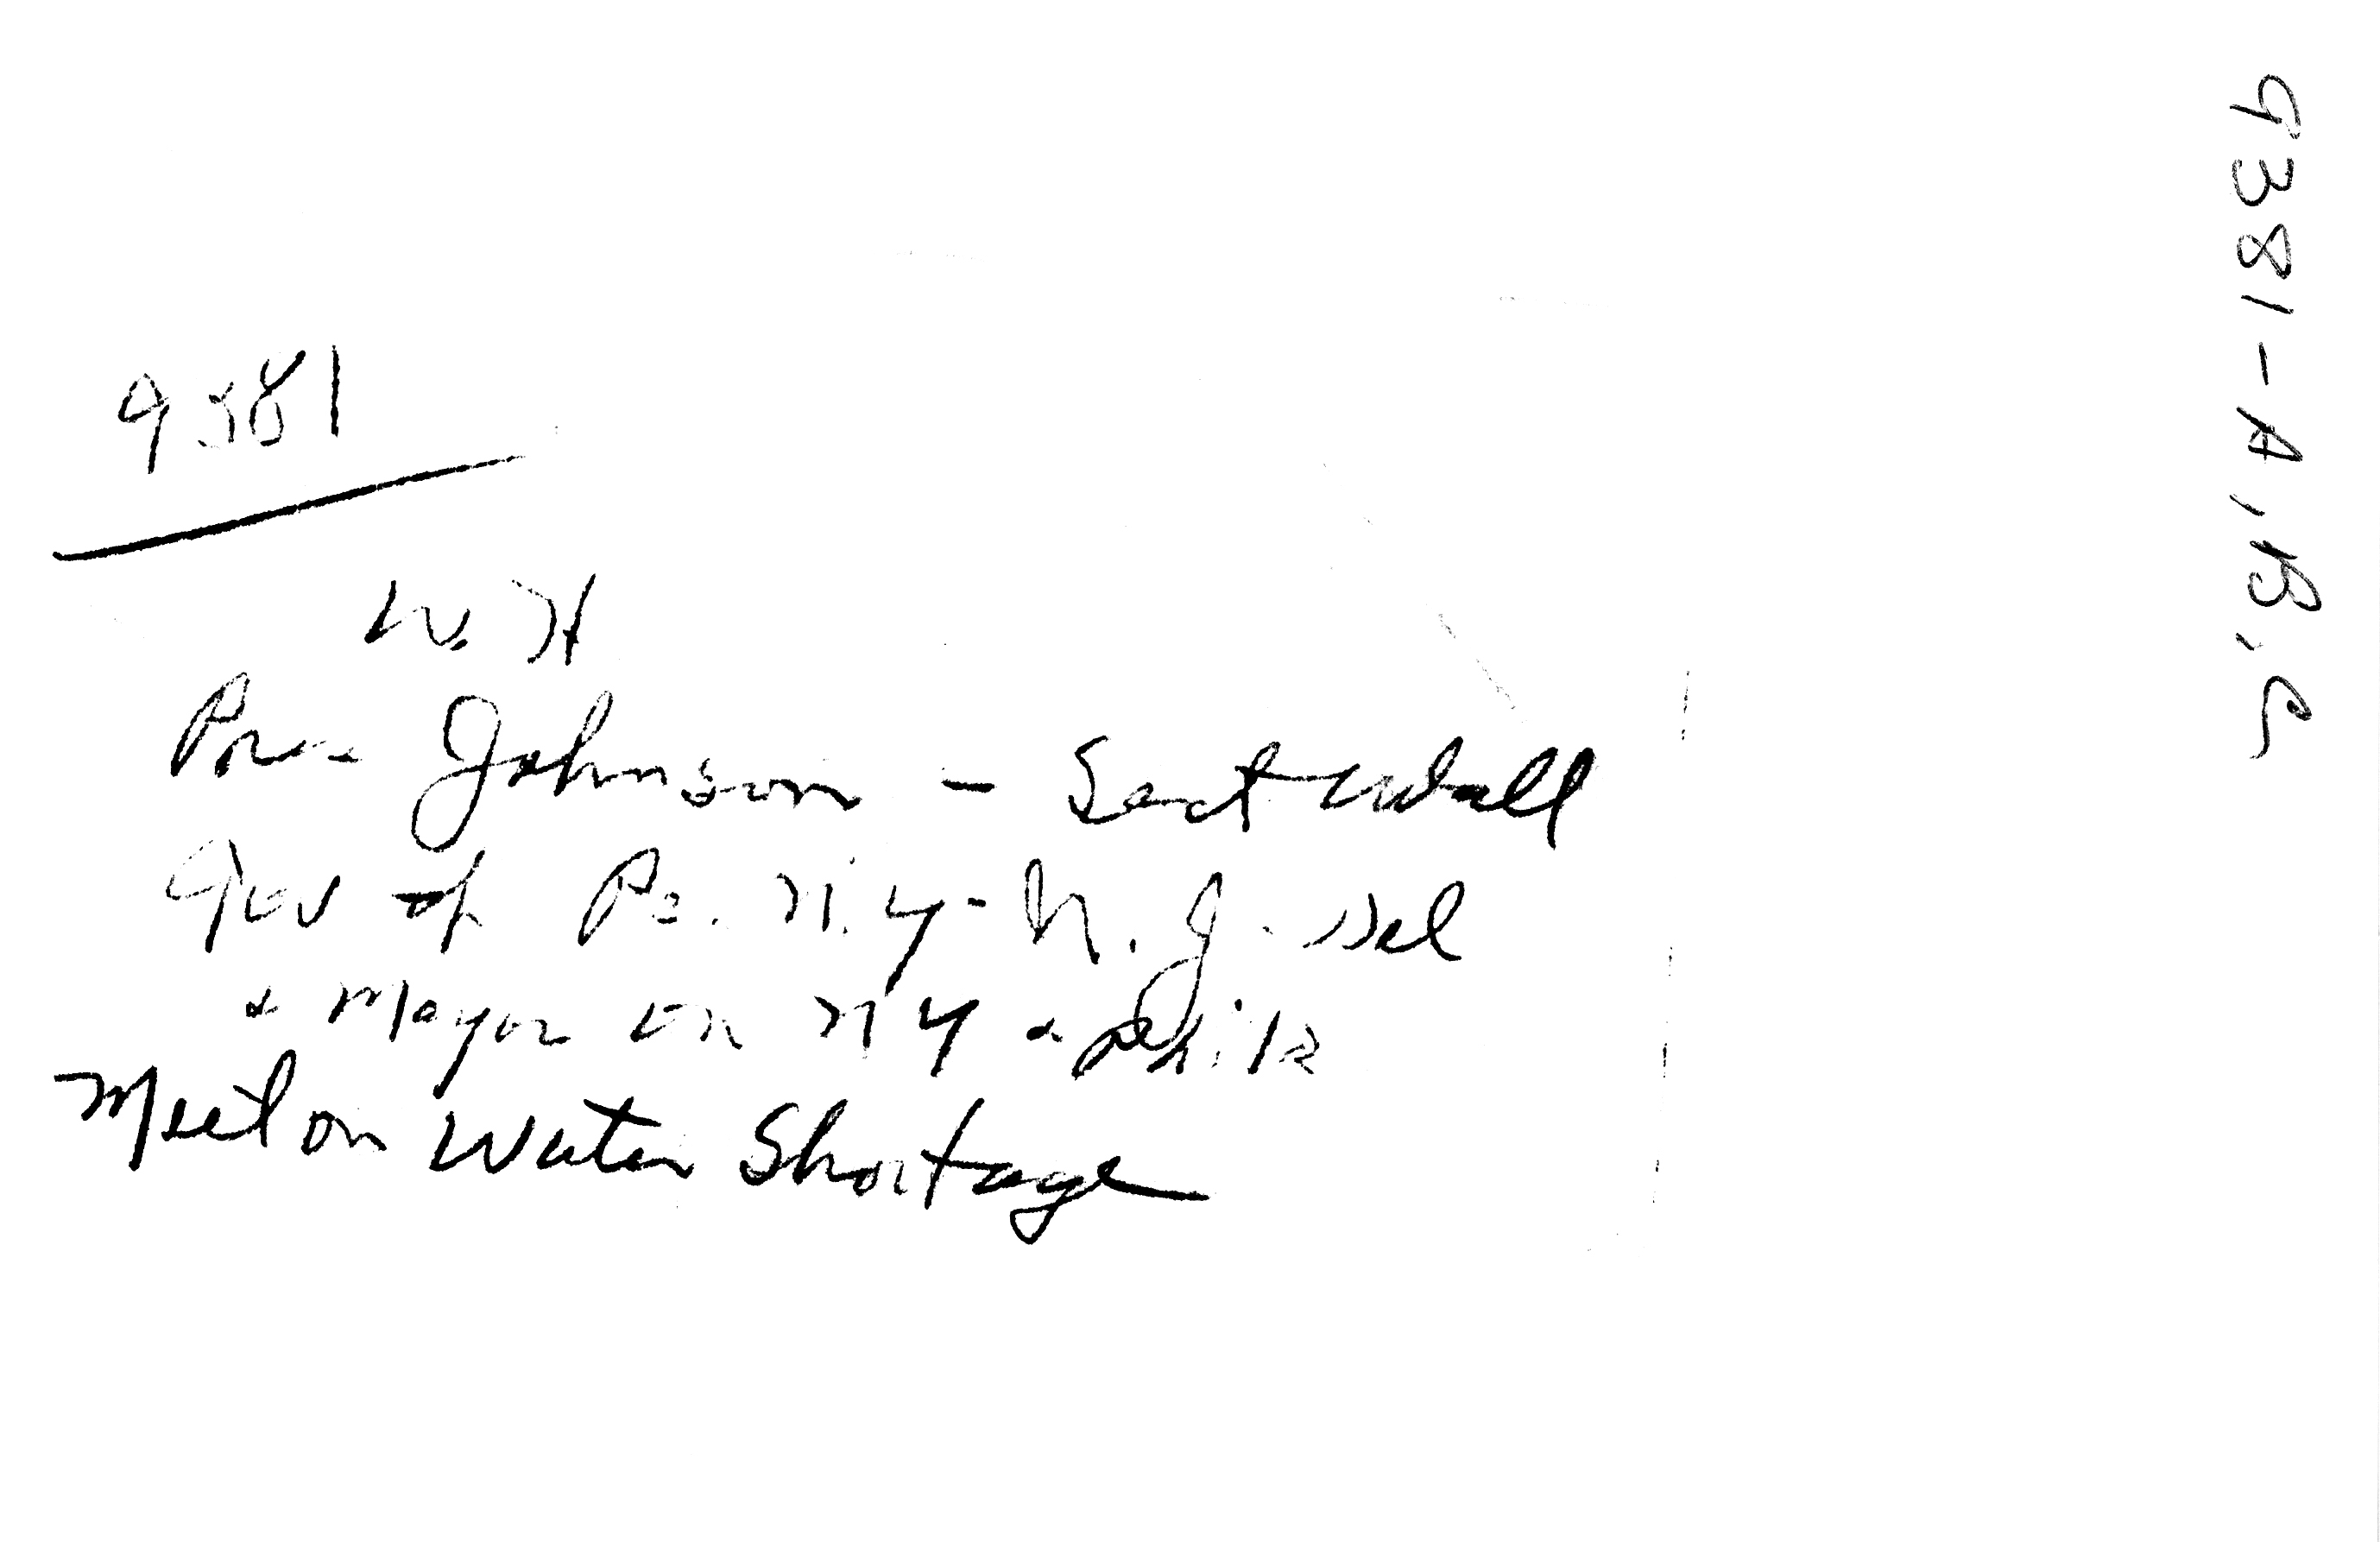 9381
W. H
Pres Johnson - Sect Udall
Gov of Pa. N.Y - N.J. Del
& Mayor on NY & Phila
Meet on Water Shortage
9381-A,B,C